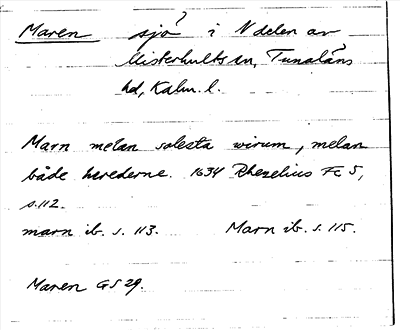 Maren sjö? i N delen av
Misterhults sn, Tunaläns
hd, Kalm. l.
Marn melan solesta wirum, melan
både herederne. 1634 Rhezelius Fc 5,
s. 112.
marn ib. s. 113. Marn ib. s. 115.
Maren GS 29.